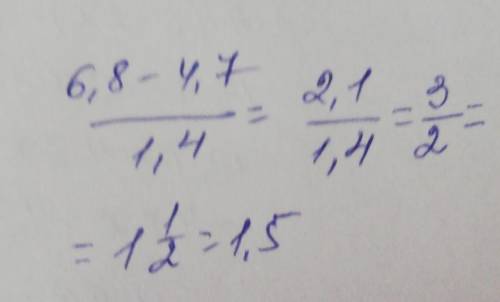 (6,8 - 4,7)/1,4 = 2,1/1,4 = 3/2 =
= 1 1/2 = 1,5